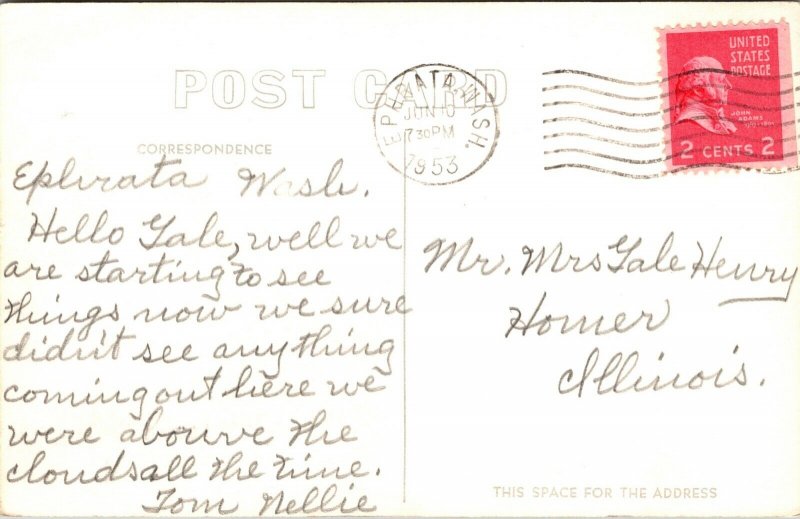 POST CARD
CORRESPONDENCE
Ephrata Wash.
Hello Gale, well we
are starting to see
things now we sure
didn't see anything
coming out here we
were abouve the
clouds all the time.
Tom Nellie
EPHRATA, WASH.
JUN 10
7 30 PM
1953
UNITED
STATES
POSTAGE
JOHN
ADAMS
2 CENTS 2
Mr. Mrs Gale Henry
Homer
Illinois.
THIS SPACE FOR THE ADDRESS